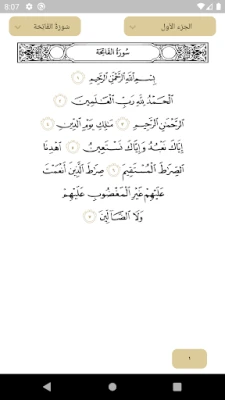 8:07
الجزء الأول
سورة الفاتحة
سُورَةُ الفَاتِحَةِ
بِسْمِ ٱللَّهِ ٱلرَّحْمَٰنِ ٱلرَّحِيمِ ١
ٱلْحَمْدُ لِلَّهِ رَبِّ ٱلْعَٰلَمِينَ ٢
ٱلرَّحْمَٰنِ ٱلرَّحِيمِ ٣ مَٰلِكِ يَوْمِ ٱلدِّينِ ٤
إِيَّاكَ نَعْبُدُ وَإِيَّاكَ نَسْتَعِينُ ٥ ٱهْدِنَا
ٱلصِّرَٰطَ ٱلْمُسْتَقِيمَ ٦ صِرَٰطَ ٱلَّذِينَ أَنْعَمْتَ
عَلَيْهِمْ غَيْرِ ٱلْمَغْضُوبِ عَلَيْهِمْ
وَلَا ٱلضَّآلِّينَ ٧
١